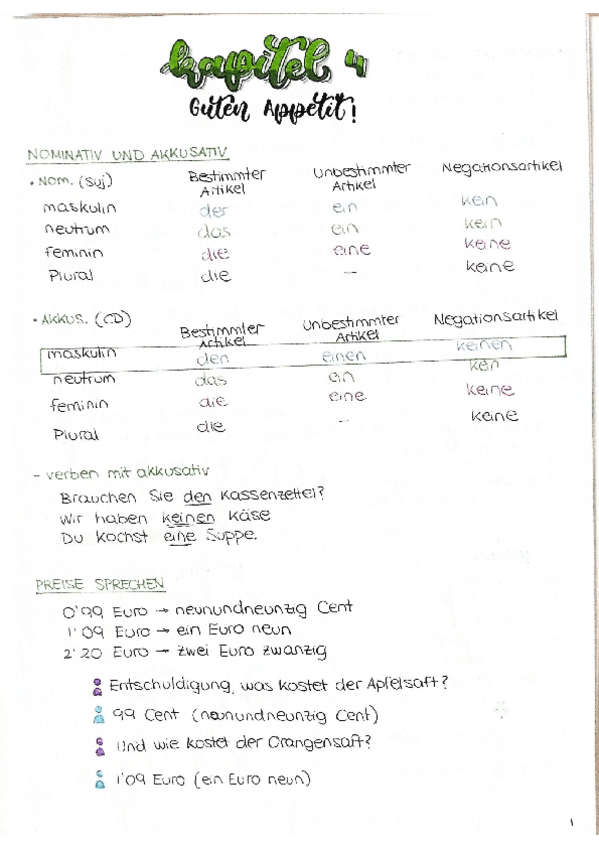 Kapitel 4
Guten Appetit!
NOMINATIV UND AKKUSATIV
• NOM. (Suj) Bestimmter Artikel Unbestimmter Artikel Negationsartikel
maskulin der ein kein
neutrum das ein kein
feminin die eine keine
Plural die — keine
• AKKUS. (CD) Bestimmter Artikel Unbestimmter Artikel Negationsartikel
maskulin den einen keinen
neutrum das ein kein
feminin die eine keine
Plural die - keine
- verben mit akkusativ
Brauchen Sie den Kassenzettel?
Wir haben keinen Käse
Du kochst eine Suppe.
PREISE SPRECHEN
0'99 Euro → neunundneunzig Cent
1'09 Euro → ein Euro neun
2'20 Euro → zwei Euro zwanzig
Entschuldigung, was kostet der Apfelsaft?
99 Cent (neunundneunzig Cent)
Und wie kostet der Orangensaft?
1'09 Euro (ein Euro neun)
1